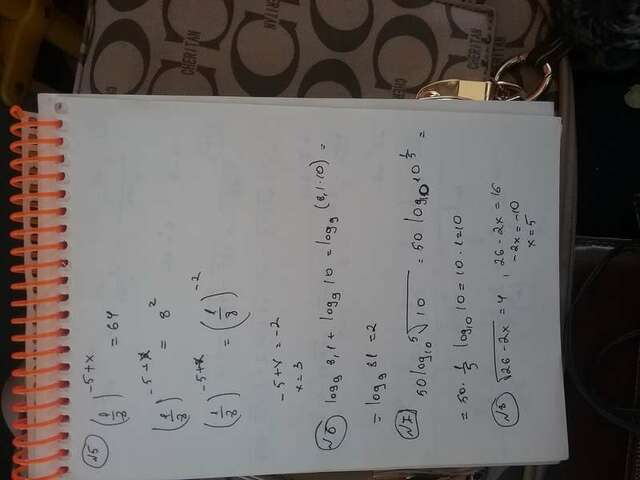 №5 (1/8)^(-5+x) = 64
(1/8)^(-5+x) = 8^2
(1/8)^(-5+x) = (1/8)^(-2)
-5+x = -2
x = 3
№6 log₉ 8,1 + log₉ 10 = log₉ (8,1·10) =
= log₉ 81 = 2
№7
50 log₁₀ ⁵√10 = 50 log₁₀ 10^(1/5) =
= 50 · 1/5 log₁₀ 10 = 10 · 1 = 10
№8 √(26-2x) = 4, 26-2x = 16
-2x = -10
x = 5
CHERITAN
CHERITAN